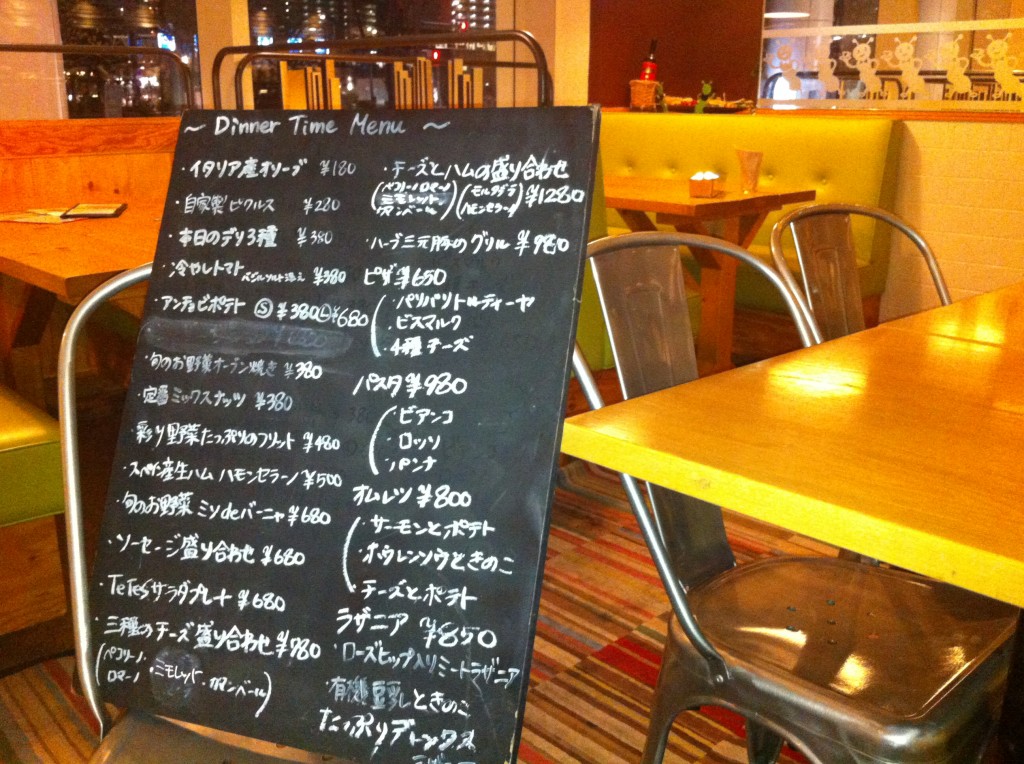 ~ Dinner Time Menu ~
・イタリア産オリーブ ¥180
・自家製ピクルス ¥280
・本日のデリ3種 ¥380
・冷やしトマト バジルソルト添え ¥380
・アンチョビポテト Ⓢ¥380Ⓛ¥680
・旬のお野菜オーブン焼き ¥380
・定番ミックスナッツ ¥380
・彩り野菜たっぷりのフリット ¥480
・スペイン産生ハム ハモンセラーノ ¥500
・旬のお野菜 ミソdeバーニャ ¥680
・ソーセージ盛り合わせ ¥680
・TeTesサラダプレート ¥680
・三種のチーズ盛り合わせ ¥980
(ペコリーノロマーノ・ミモレット・カマンベール)
・チーズとハムの盛り合わせ
(ペコリーノロマーノ ミモレット カマンベール)(モルタデラ ハモンセラーノ) ¥1280
・ハーブ三元豚のグリル ¥980
ピザ ¥650
・パリパリトルティーヤ
・ビスマルク
・4種チーズ
パスタ ¥980
・ビアンコ
・ロッソ
・パンナ
オムレツ ¥800
・サーモンとポテト
・ホウレンソウときのこ
・チーズとポテト
ラザニア ¥850
・ローズヒップ入りミートラザニア
・有機豆乳ときのこ
たっぷりデトックス
ラザニア